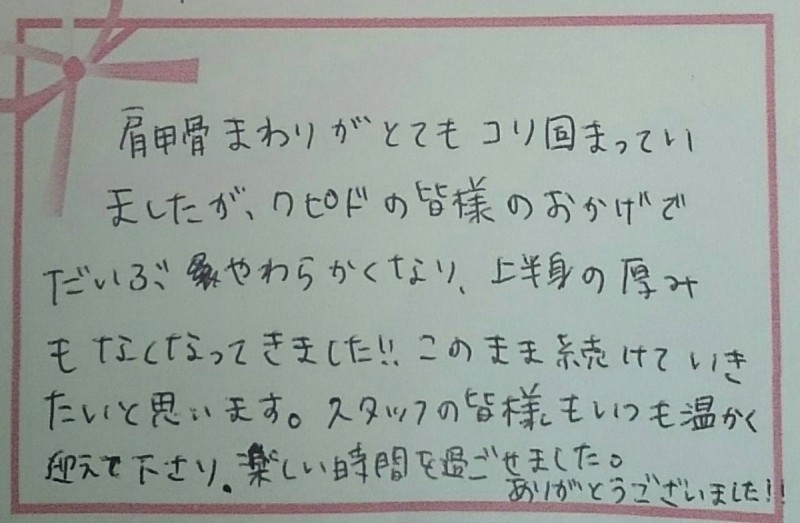 肩甲骨まわりがとてもコリ固まってい
ましたが、クピドの皆様のおかげで
だいぶやわらかくなり、上半身の厚み
もなくなってきました!!このまま続けていき
たいと思います。スタッフの皆様もいつも温かく
迎えて下さり、楽しい時間を過ごせました。
ありがとうございました!!